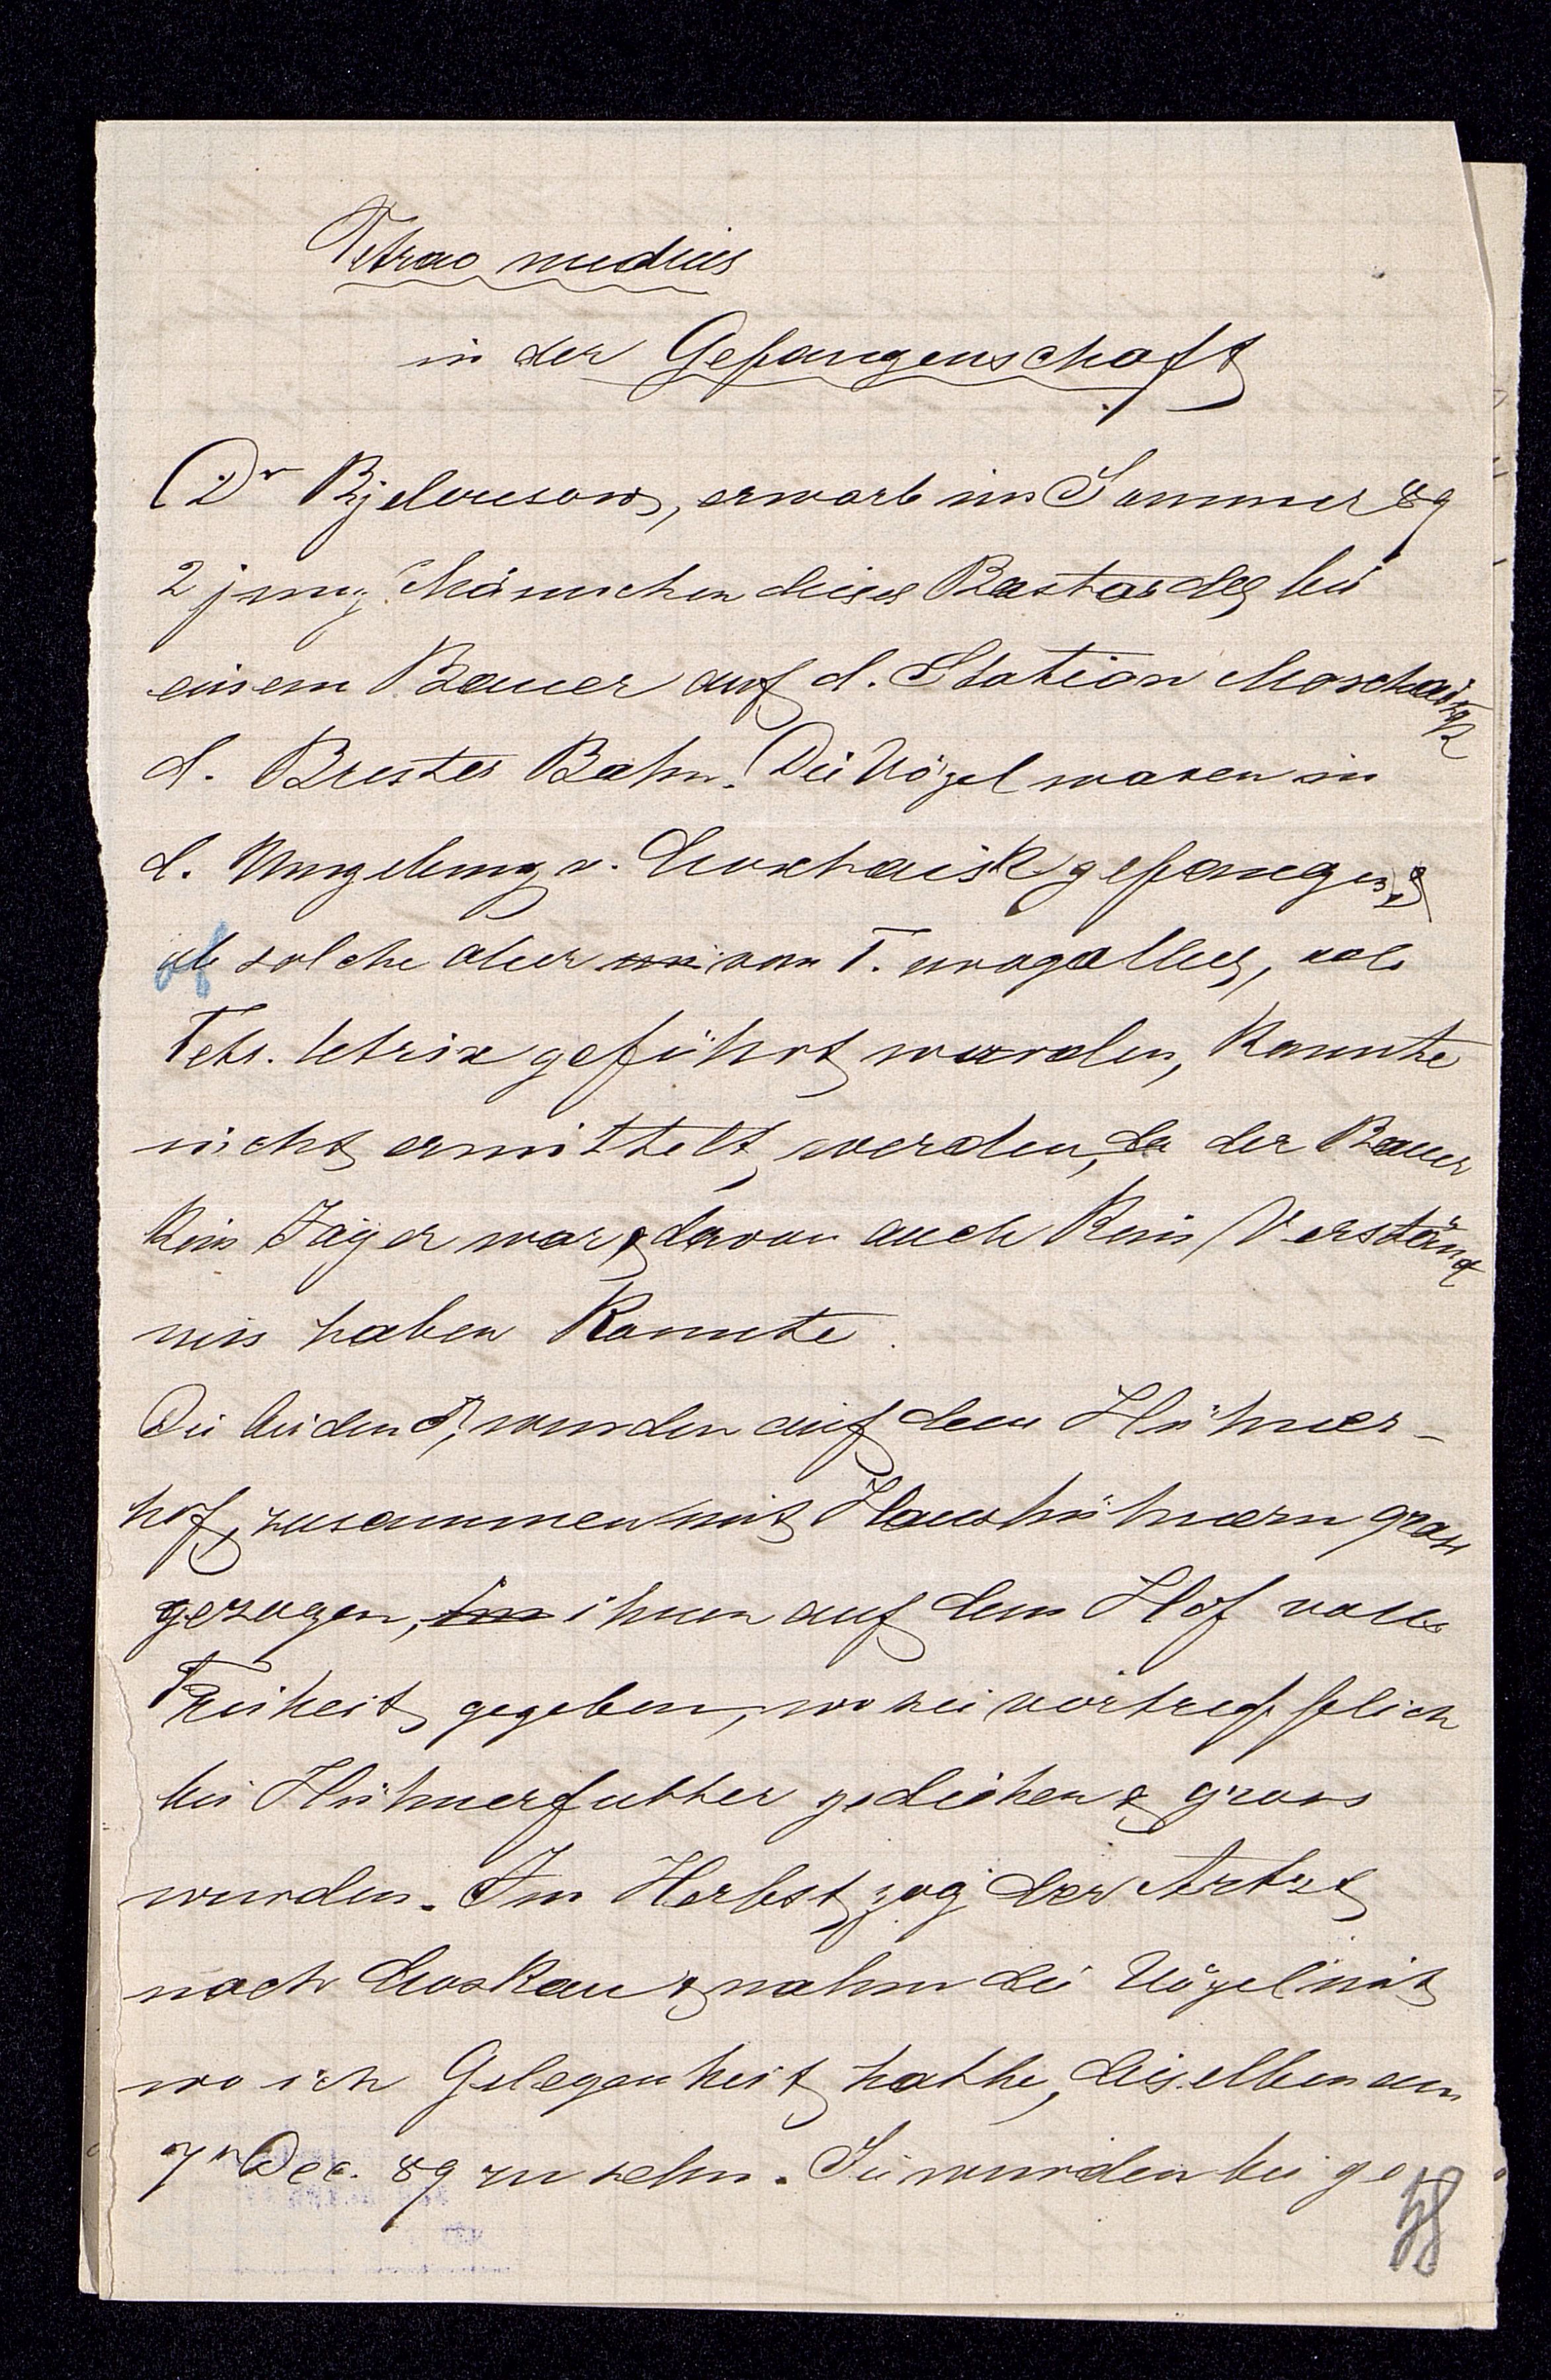 Tetrao medius
in der Gefangenschaft
Dr Bjelousow, erwarb im Sommer 89
2 jung Männchen dieses Bastardes bei
einem Bauer auf d. Station Moschaisk
d. Brester Bahn. Die Vögel waren in
d. Umgebung v. Moschaisk gefangen &
ob solche aber von T. urogallus, od.
Tetr. tetrix geführt wurden, konnte
nicht ermittelt werden, da der Bauer
kein Jäger war & davon auch kein Verständ
nis haben konnte.
Die beiden ♂, wurden auf dem Hühner-
hof, zusammen mit Haushühnern gross
gezogen, ihnen auf dem Hof volle
Freiheit gegeben, wo sei vortrefflich
bei Hühnerfutter gediehen & gross
wurden. Im Herbst zog der Artzt
nach Moskau & nahm die Vögel mit
wo ich Gelegenheit hatte, dieselben am
7n Dec. 89 zu sehn. Sie wurden bei ge